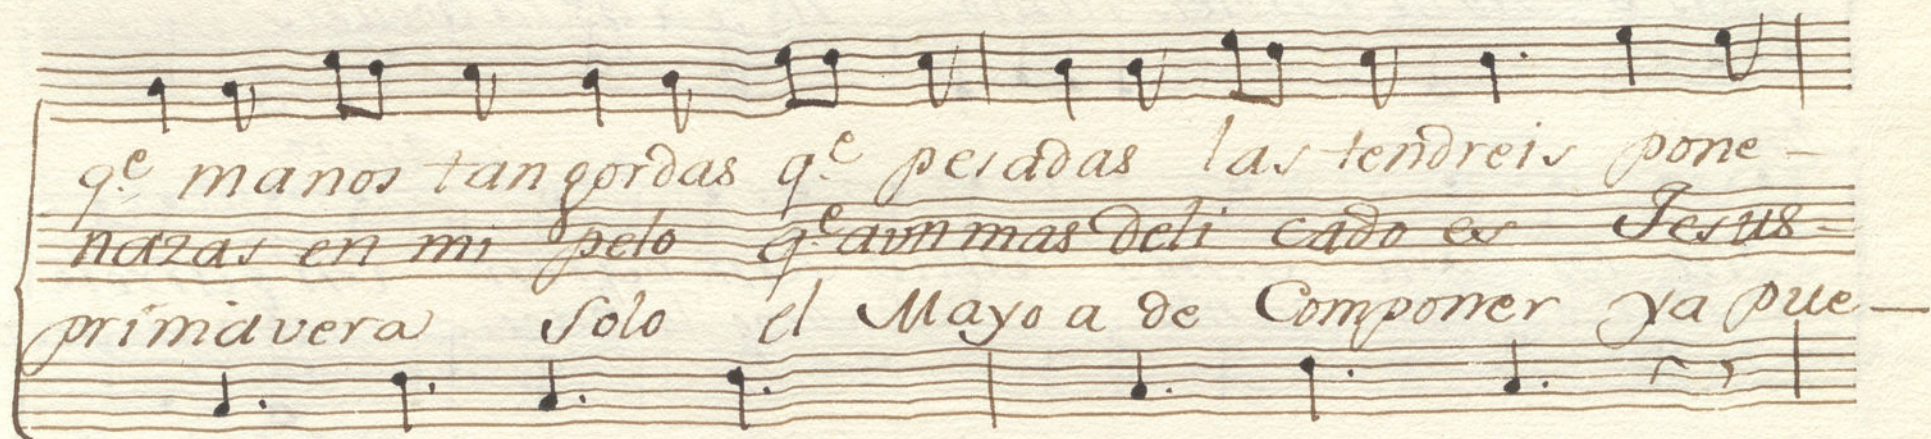 q.e manos tan gordas q.e pesadas las tendreis pone-
nazas en mi pelo q.e aun mas deli cado es Jesus-
primavera solo el Mayo a de Componer ya pue-